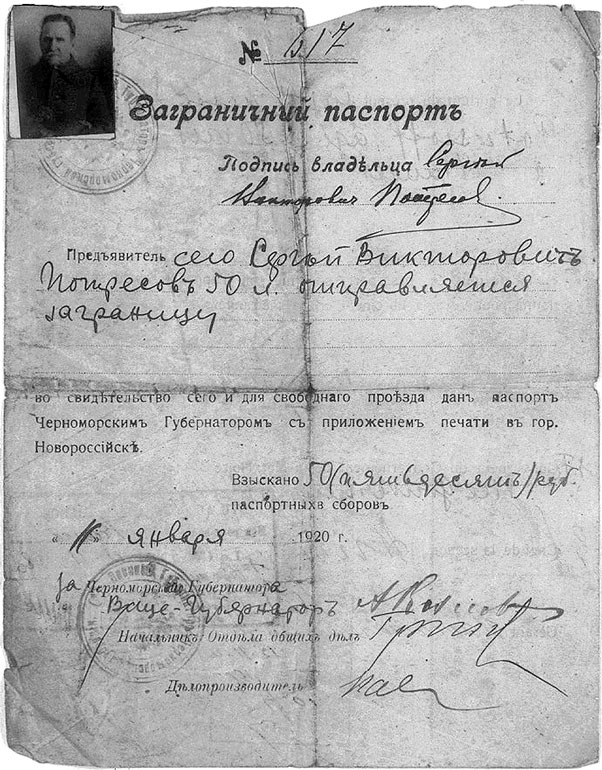 № 517
Заграничний паспортъ
Подпись владѣльца Сергѣй
Викторович Потресов
Предъявитель сего Сергѣй Викторовичъ
Потресовъ 50 л. отправляется
заграницу
во свидѣтельство сего и для свободнаго проѣзда данъ паспортъ
Черноморскимъ Губернаторомъ съ приложеніемъ печати въ гор.
Новороссійскѣ.
Взыскано 50 (пятьдесятъ) руб.
паспортныхъ сборовъ
" 11 " января 1920 г.
За Черноморскаго Губернатора
Вице-Губернаторъ
Начальникъ Отдѣла общихъ дѣлъ
Дѣлопроизводитель